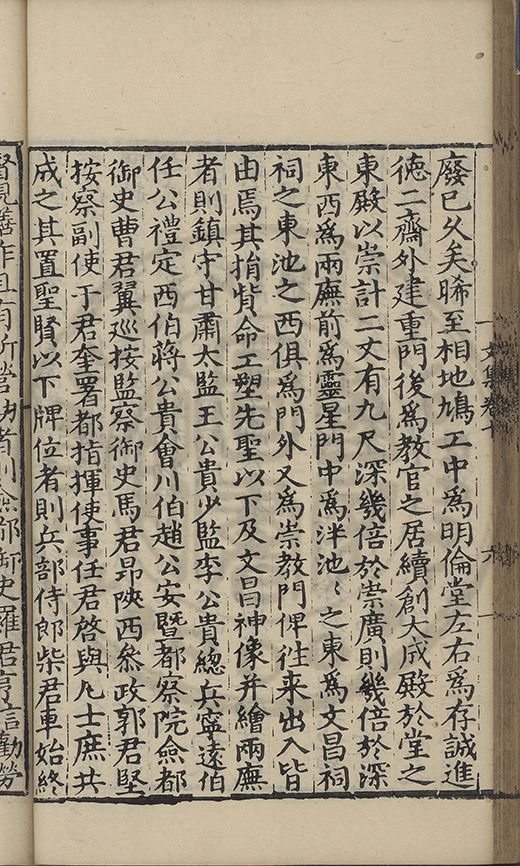 廢已久矣晞至相地鳩工中為明倫堂左右為存誠進
德二齋外建重門後為教官之居續創大成殿於堂之
東殿以崇計二丈有九尺深幾倍於崇廣則幾倍於深
東西為兩廡前為靈星門中為泮池〻之東為文昌祠
祠之東池之西俱為門外又為崇教門俾徃来出入皆
由焉其捐貲命工塑先聖以下及文昌神像并繪兩廡
者則鎮守甘肅太監王公貴少監李公貴緫兵寧遠伯
任公禮定西伯蔣公貴會川伯趙公安暨都察院僉都
御史曹君翼廵按監察御史馬君昂陝西叅政郭君堅
按察副使于君奎署都指揮使事任君啓與凢士庶共
成之其置聖賢以下牌位者則兵部侍郎柴君車始終
御史羅君亨信勸勞
文集卷十
六